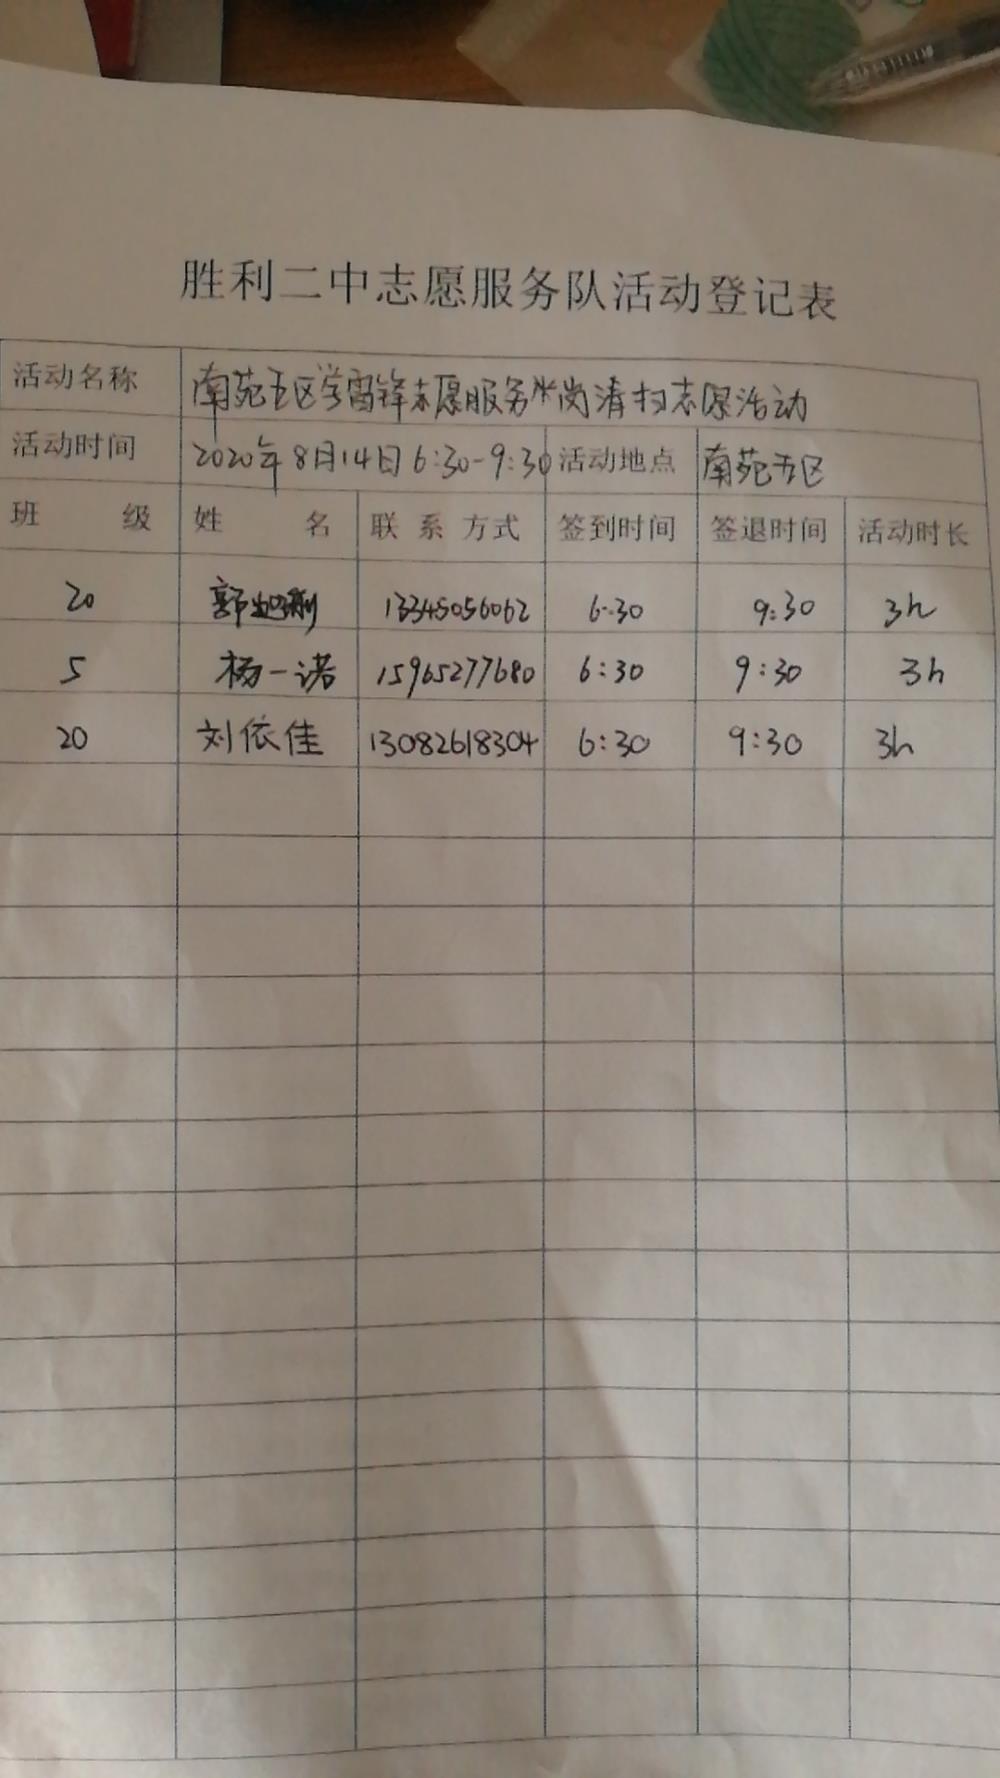 胜利二中志愿服务队活动登记表
活动名称 南苑五区学雷锋志愿服务 岗清扫志愿活动
活动时间 2020年8月14日6:30-9:30 活动地点 南苑五区
班 级 姓 名 联 系 方式 签到时间 签退时间 活动时长
20 郭 13345056062 6:30 9:30 3h
5 杨一诺 15965277680 6:30 9:30 3h
20 刘依佳 13082618304 6:30 9:30 3h